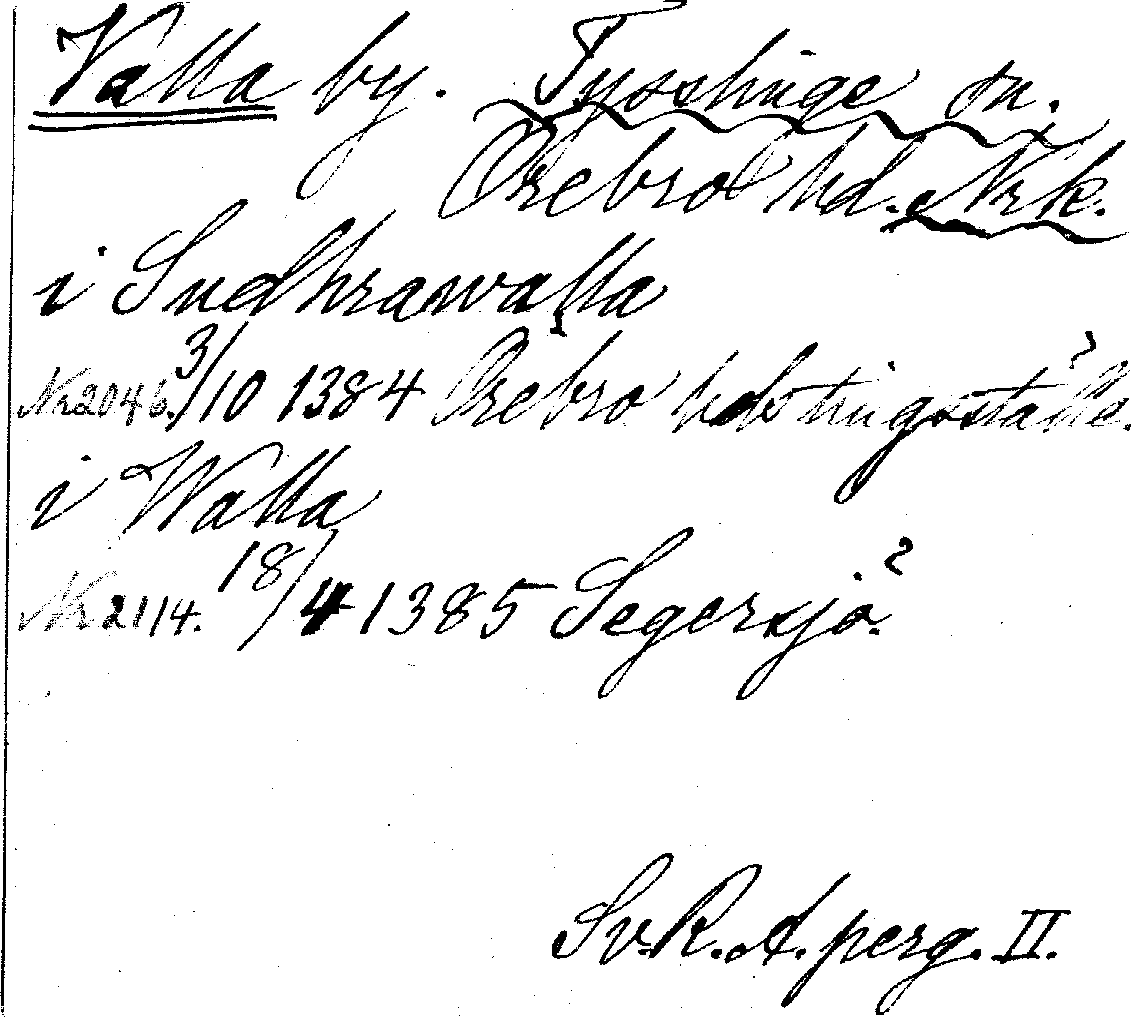 Valla by. Tysslinge sn.
Örebro hd. Nrk.
i Sudhrawalla
Nr 2046. 3/10 1384 Örebro hds tingsställe.
i Walla
Nr 2114. 18/4 1385 Segersjö?
Sv. R. A. perg. II.